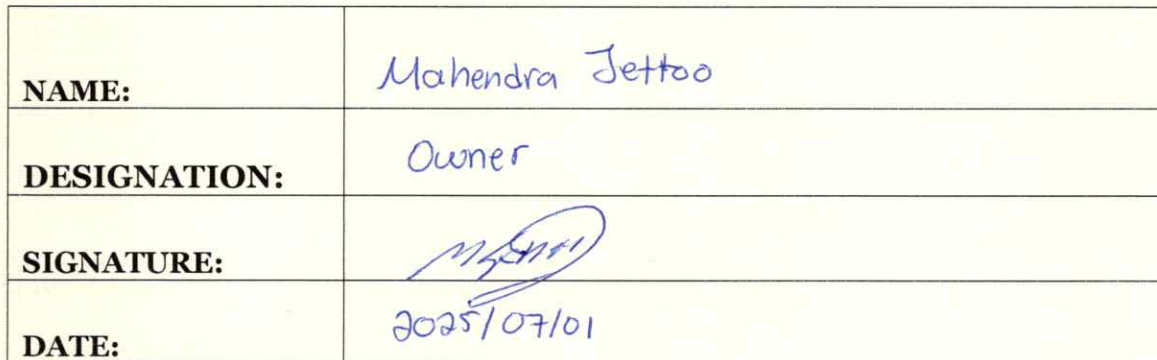 NAME: Mahendra Jettoo
DESIGNATION: Owner
SIGNATURE:
DATE: 2025/07/01